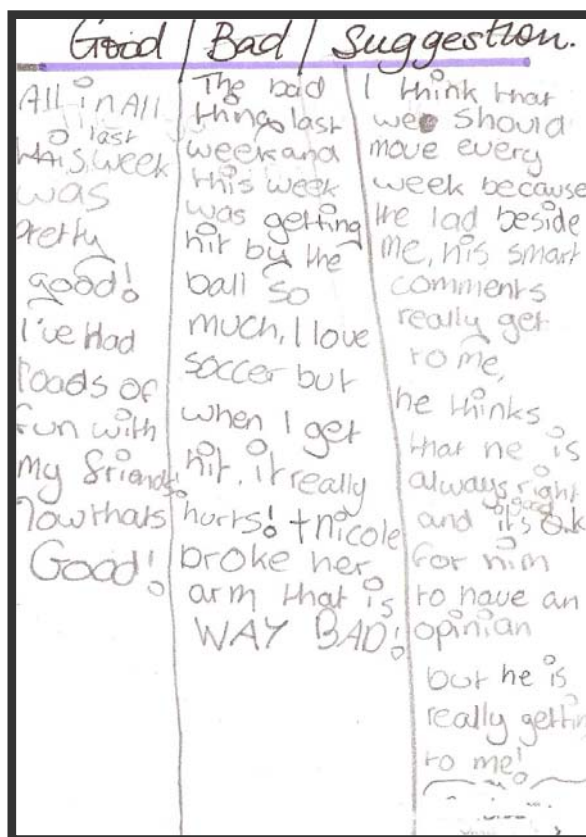 Good / Bad / Suggestion.
All in All
last
this week
was
pretty
good!
I've Had
loads of
fun with
my friends!
Now thats
Good!
The bad
things last
week and
this week
was getting
hit by the
ball so
much, I love
soccer but
when I get
hit, it really
hurts! + Nicole
broke her
arm that is
WAY BAD!
I think that
we should
move every
week because
the lad beside
me, his smart
comments
really get
to me,
he thinks
that he is
always right
and it's
for him
to have an
opinian
but he is
really getting
to me!